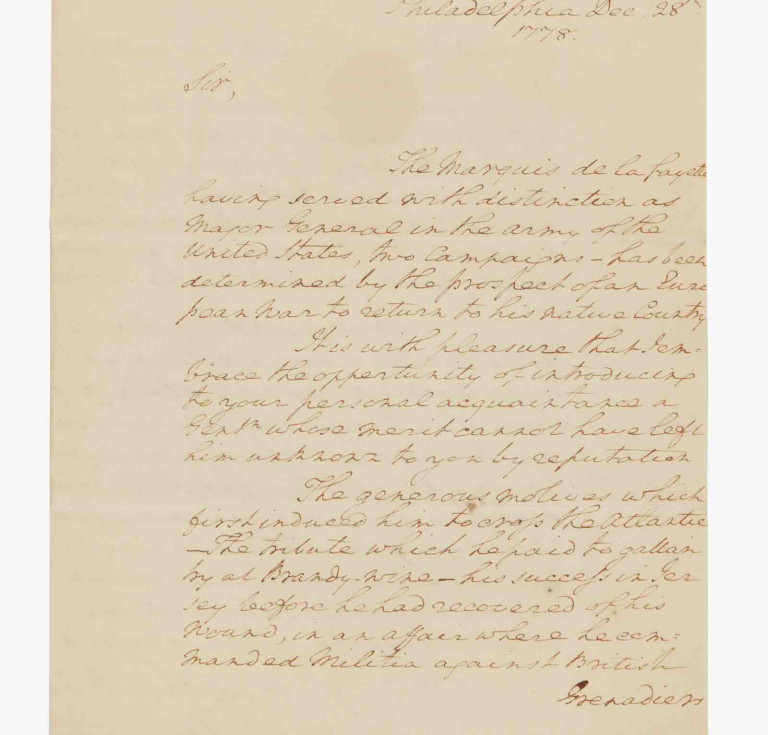 Philadelphia Dec. 28th
1778.
Sir,
The Marquis de la fayette
having served with distinction as
Major General in the army of the
United States, two Campaigns – has been
determined by the prospect of an Euro
pean War to return to his native Country
It is with pleasure that I em-
brace the opportunity of introducing
to your personal acquaintance a
Gentn whose merit cannot have left
him unknown to you by reputation
The generous motives which
first induced him to cross the Atlantic
– The tribute which he paid to gallan
try at Brandy-wine – his success in Jer
sey before he had recovered of his
Wound, in an affair where he com=
manded Militia against British
Grenadiers